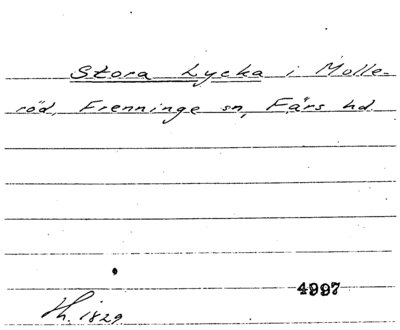 Stora Lycka i Molle-
röd, Frenninge sn, Färs hd.
4997
Hh. 1829